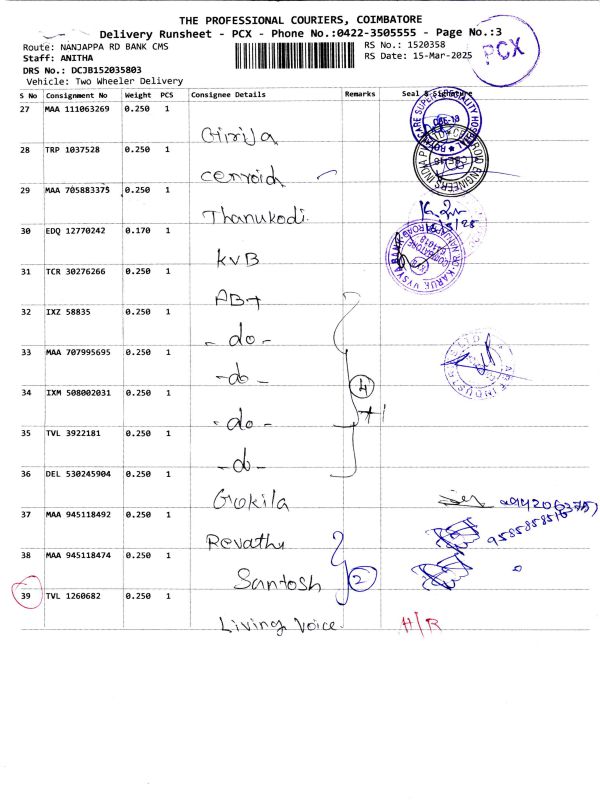 THE PROFESSIONAL COURIERS, COIMBATORE
Delivery Runsheet - PCX - Phone No.:0422-3505555 - Page No.:3
Route: NANJAPPA RD BANK CMS
RS No.: 1520358
Staff: ANITHA
RS Date: 15-Mar-2025
PCX
DRS No.: DCJB152035803
Vehicle: Two Wheeler Delivery
S No Consignment No Weight PCS Consignee Details Remarks Seal & Signature
27 MAA 111063269 0.250 1
Girija
28 TRP 1037528 0.250 1
cenroid
29 MAA 705883375 0.250 1
Thanukodi.
30 EDQ 12770242 0.170 1
KVB
31 TCR 30276266 0.250 1
ABT
32 IXZ 58835 0.250 1
- do -
33 MAA 707995695 0.250 1
- do -
34 IXM 508002031 0.250 1
4
- do -
+1
35 TVL 3922181 0.250 1
- do -
36 DEL 530245904 0.250 1
Gokila
37 MAA 945118492 0.250 1
9585858516
Revathy
38 MAA 945118474 0.250 1
Santosh
2
39 TVL 1260682 0.250 1
Living Voice.
H/R